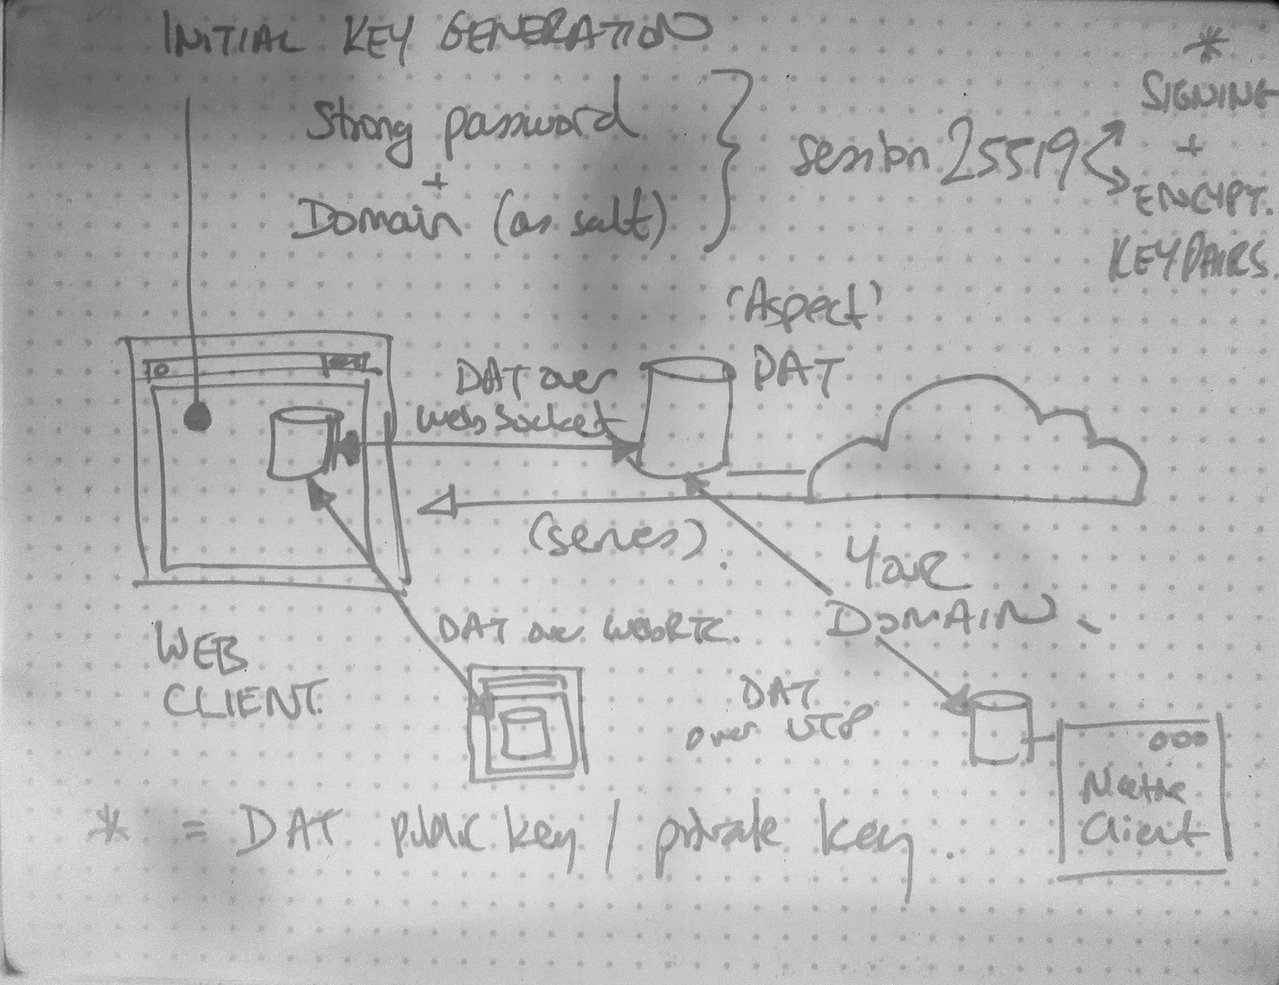 INITIAL KEY GENERATION
Strong password
+
Domain (as salt)
session 25519
*
SIGNING
+
ENCYPT.
KEYPAIRS
'Aspect'
DAT
DAT over
Web Socket
(serves)
YOUR
DOMAIN
WEB
CLIENT.
DAT over WebRTC.
DAT
over UTP
Native
Client
* = DAT public key / private key.